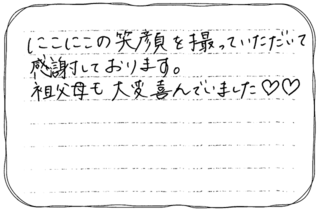 にこにこの笑顔を撮っていただいて
感謝しております。
祖父母も大変喜んでいました♡♡